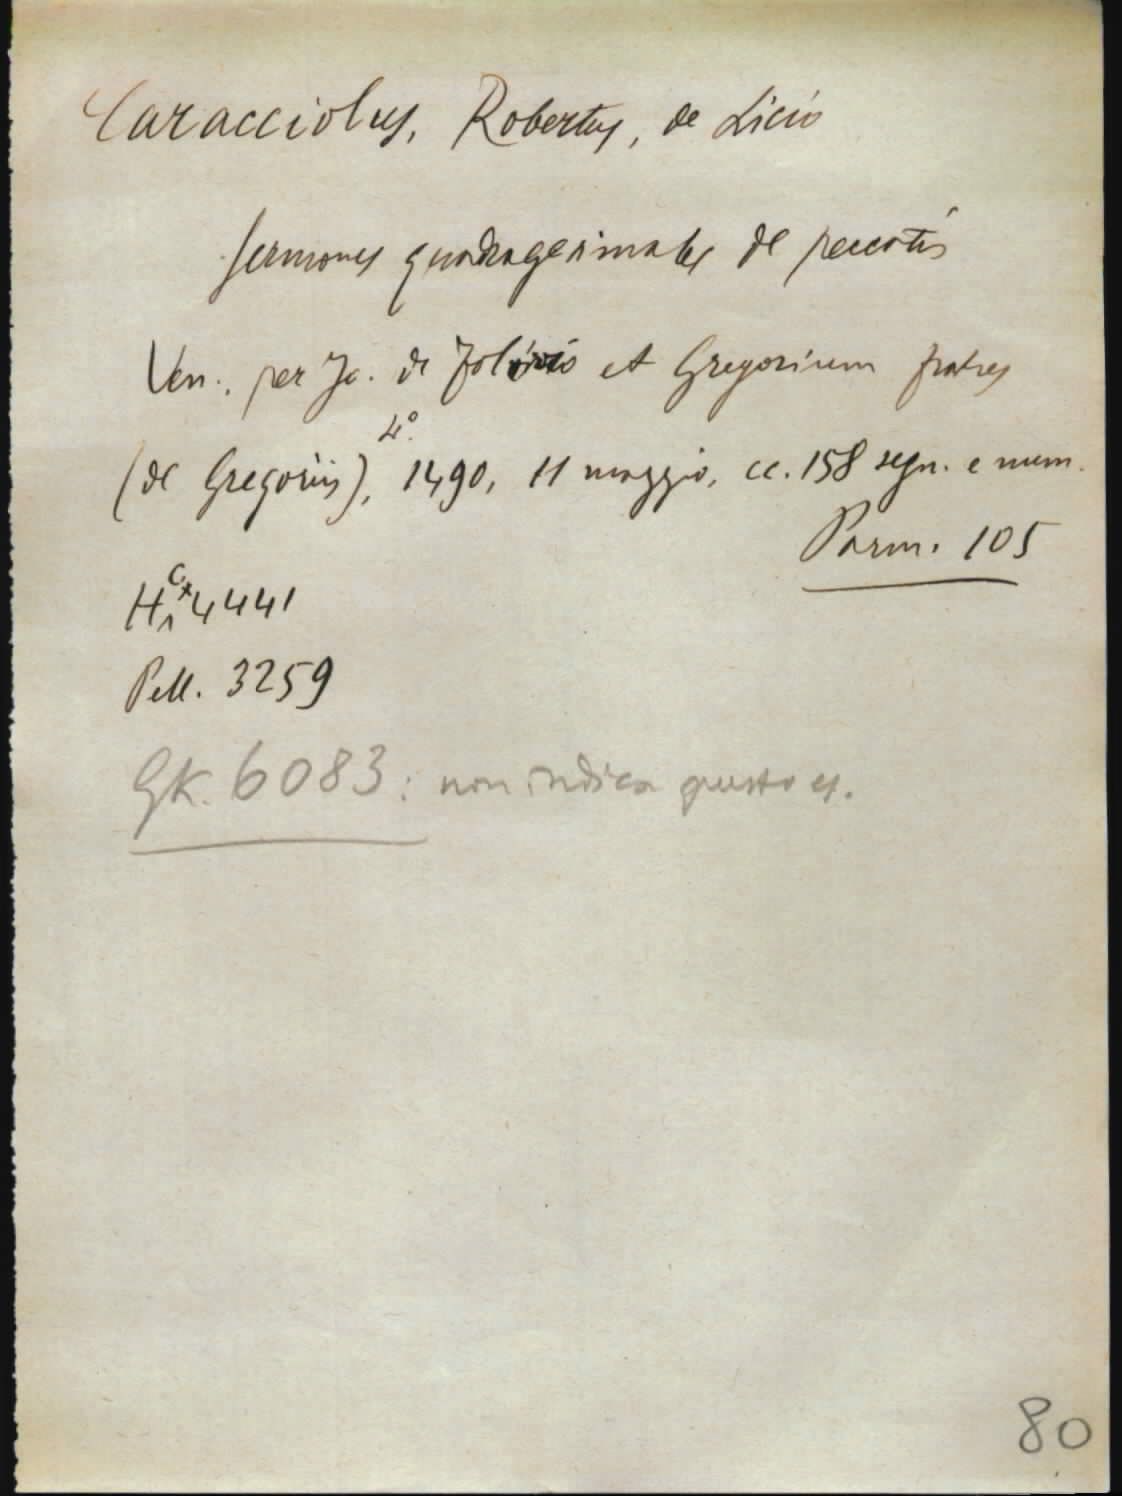 Caracciolus, Robertus, de Licio
Sermones quadragesimales de peccatis
Ven., per Jo. de et Gregorium fratres
(de Gregoriis), 4°. 1490, 11 maggio, cc. 158 segn. e num.
Parm. 105
HC*4441
Pell. 3259
GK. 6083: non indica questo es.
80